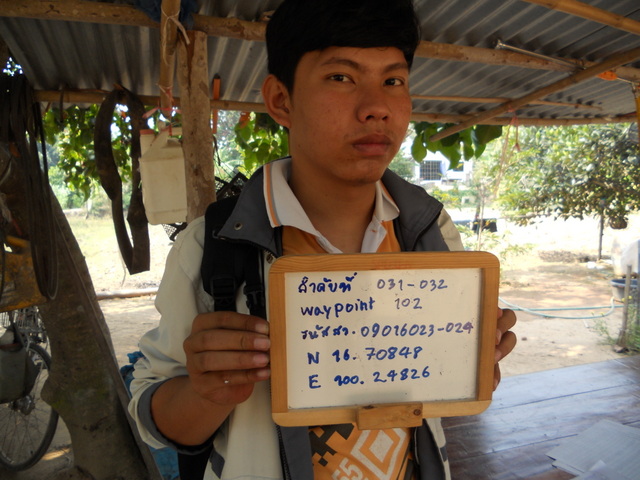 ลำดับที่ 031-032
waypoint 102
รหัสสว. 09016023-024
N 16. 70848
E 100. 24826
55